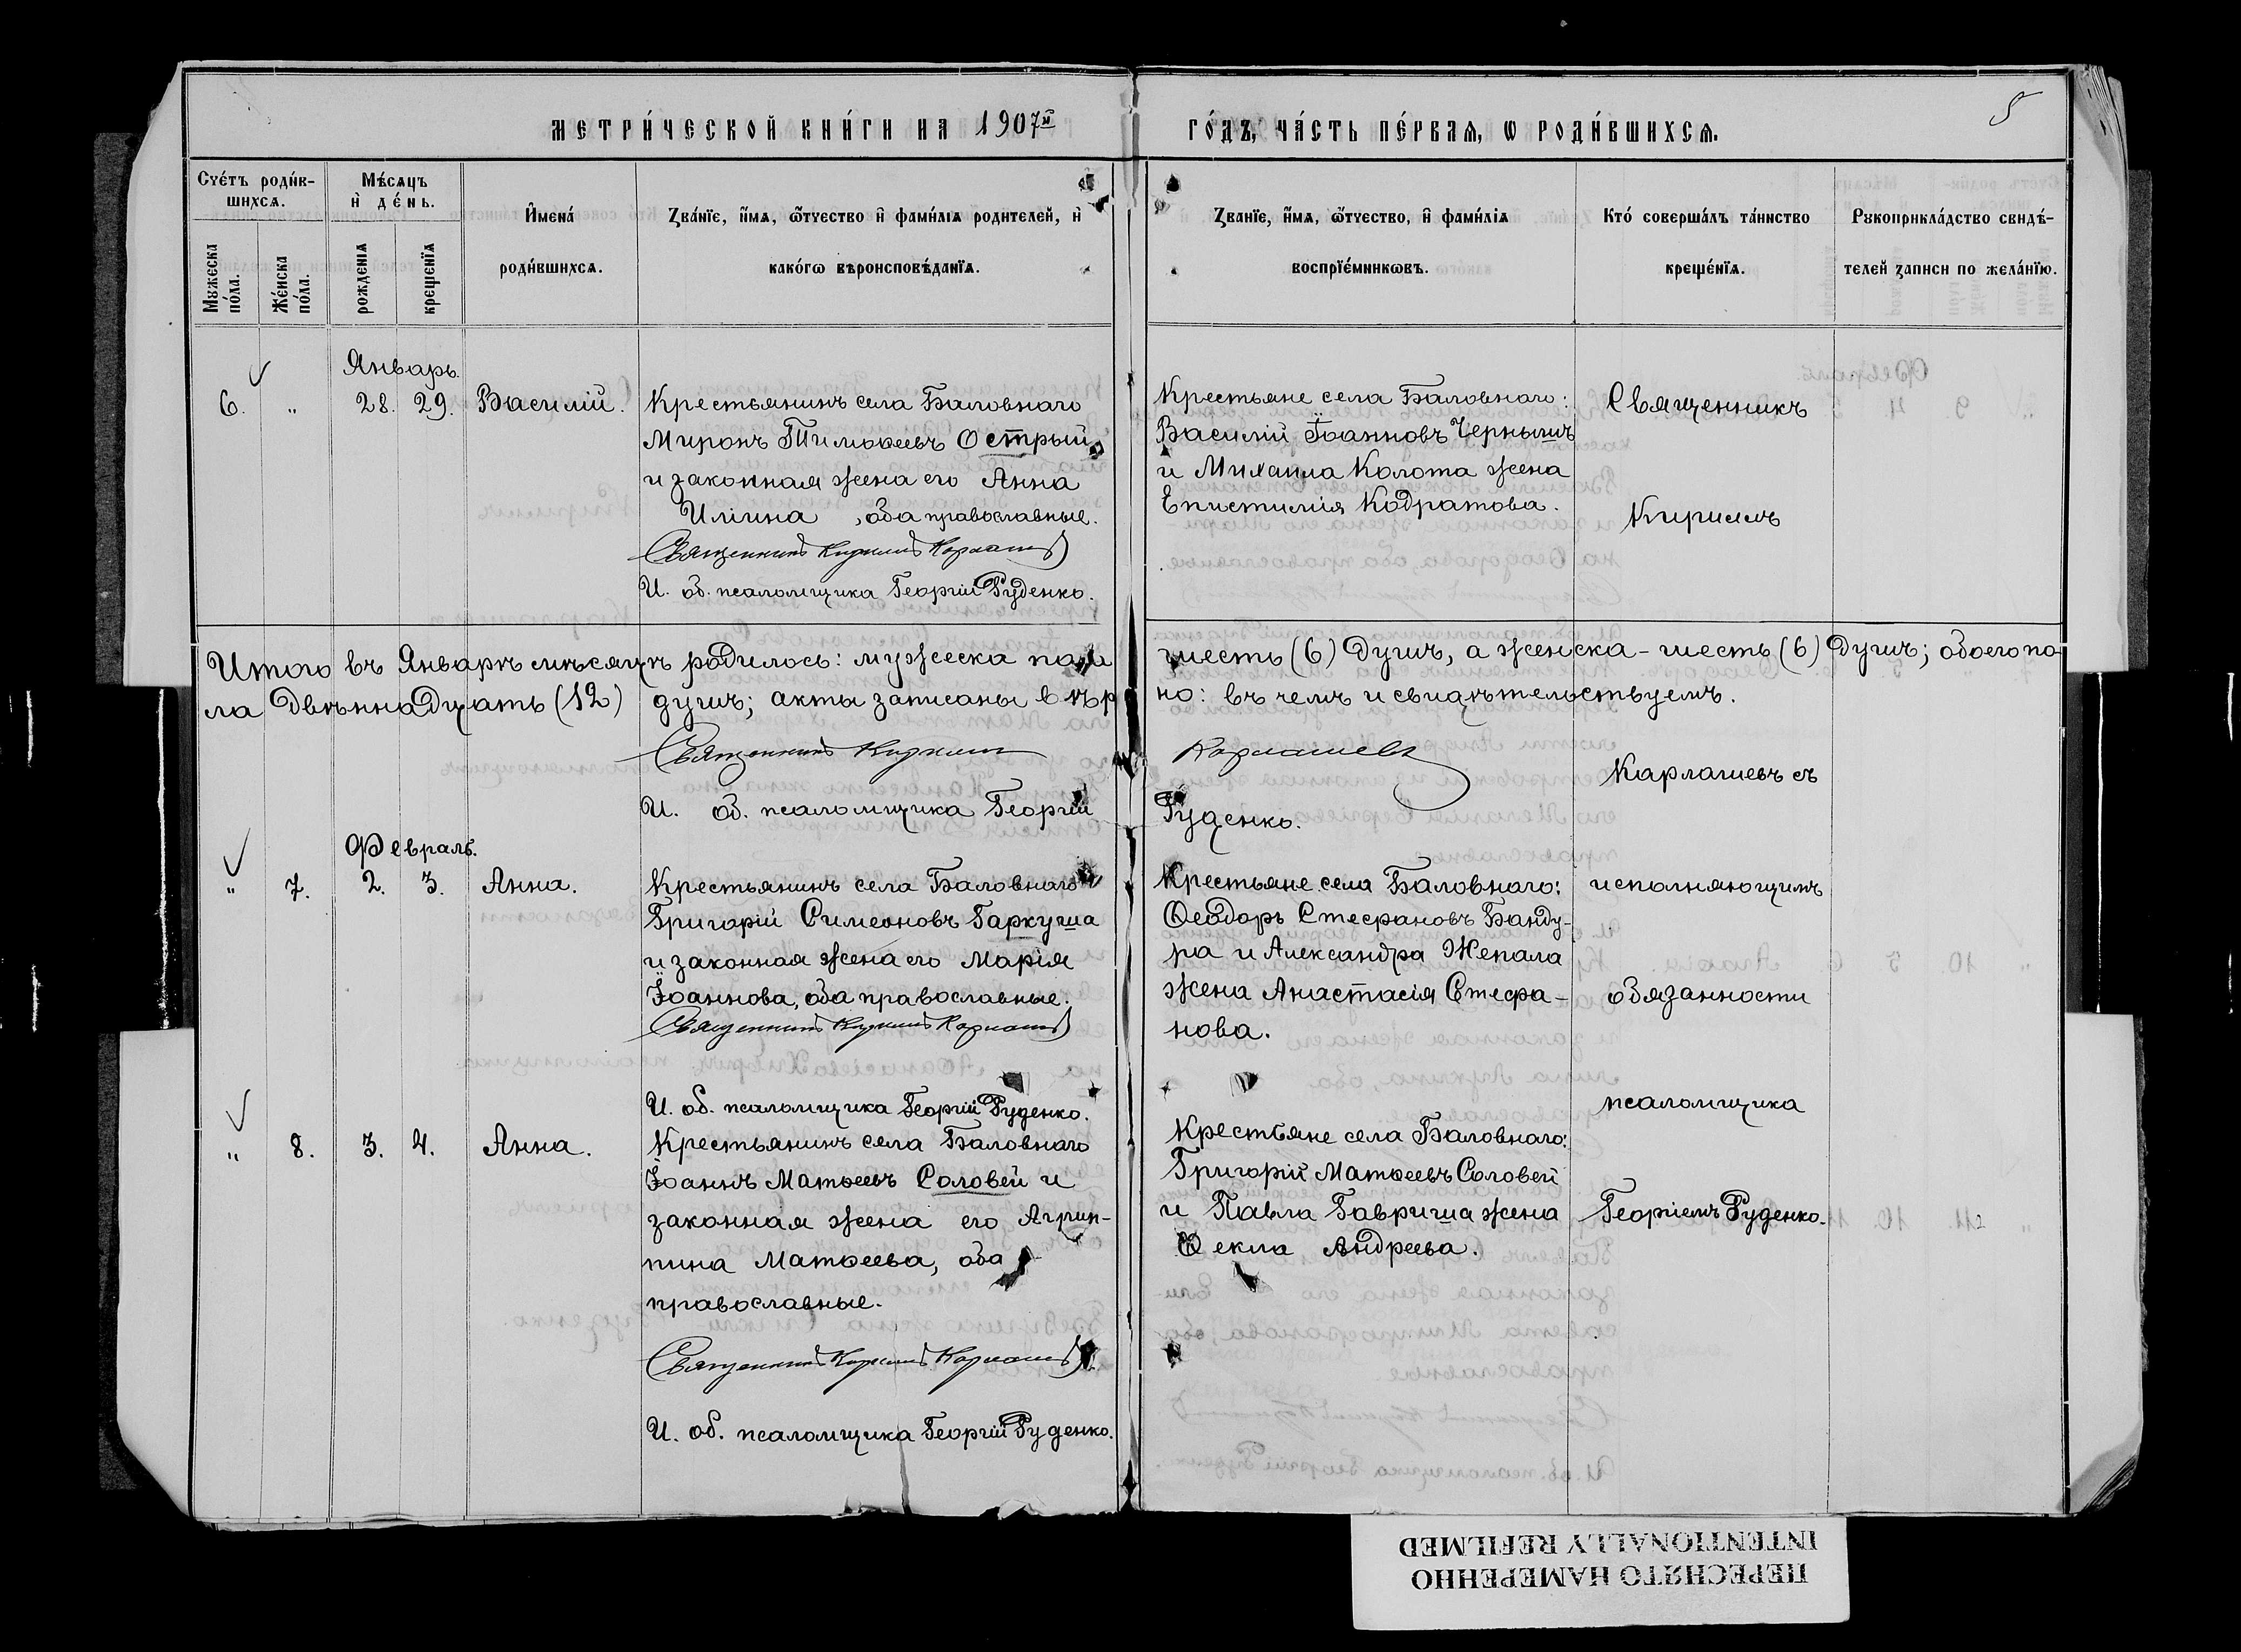 МЕТРИ́ЧЕСКОЙ КНИ́ГИ НА 1907й
ГО́ДЪ, ЧА́СТЬ ПЕ́РВАЯ, Ѡ РОДИ́ВШИХСЯ.
5
Счетъ роди́в-
шихся.
Мѣсяцъ
и де́нь.
Мужеска
по́ла.
Же́нска
по́ла.
рожденїя
крещенїя
Имена́
роди́вшихся.
Зва́нїе, имя, ѿчество и фами́лїя родителей, и
како́гѡ вѣроисповѣ́данїя.
Званїе, имя, ѿчество, и фами́лїя
воспрїе́мникѡвъ.
Кто́ соверша́лъ та́инство
креще́нїя.
Рукоприкла́дство свидѣ́-
телей записи по жела́нїю.
Январь.
6. " 28. 29. Василій.
Крестьянинъ села Баловнаго
Миронъ Тимоѳеевъ Острый
и законная жена его Анна
Иліина, оба православные.
Священникъ Кириллъ Карлашевъ
И. об. псаломщика Георгій Руденко.
Крестьяне села Баловнаго:
Василій Іоанновъ Чернышъ
и Михаила Колота жена
Епистимія Кодратова.
Священникъ
Кириллъ
Итого въ Январѣ мѣсяцѣ родилось: мужеска пола шесть (6) душъ, а женска - шесть (6) душъ; обоего по-
ла двѣннадцать (12) душъ; акты записаны вѣрно: въ чемъ и свидѣтельствуемъ.
Священникъ Кириллъ Карлашевъ
И. об. псаломщика Георгій Руденко.
Карлашевъ съ
Февраль.
" 7. 2. 3. Анна.
Крестьянинъ села Баловнаго
Григорій Симеоновъ Гаркуша
и законная жена его Марія
Іоаннова, оба православные.
Священникъ Кириллъ Карлашевъ
И. об. псаломщика Георгій Руденко.
Крестьяне села Баловнаго:
Ѳеодоръ Стефановъ Банду-
ра и Александра Жепала
жена Анастасія Стефа-
нова.
исполняющимъ
обязанности
псаломщика
" 8. 3. 4. Анна.
Крестьянинъ села Баловнаго
Іоаннъ Матѳеевъ Соловей и
законная жена его Агрип-
пина Матѳеева, оба
православные.
Священникъ Кириллъ Карлашевъ
И. об. псаломщика Георгій Руденко.
Крестьяне села Баловнаго:
Григорій Матѳеевъ Соловей
и Павла Гавриша жена
Ѳекла Андреева.
Георгіемъ Руденко.
ПЕРЕСНЯТО НАМЕРЕННО
INTENTIONALLY REFILMED